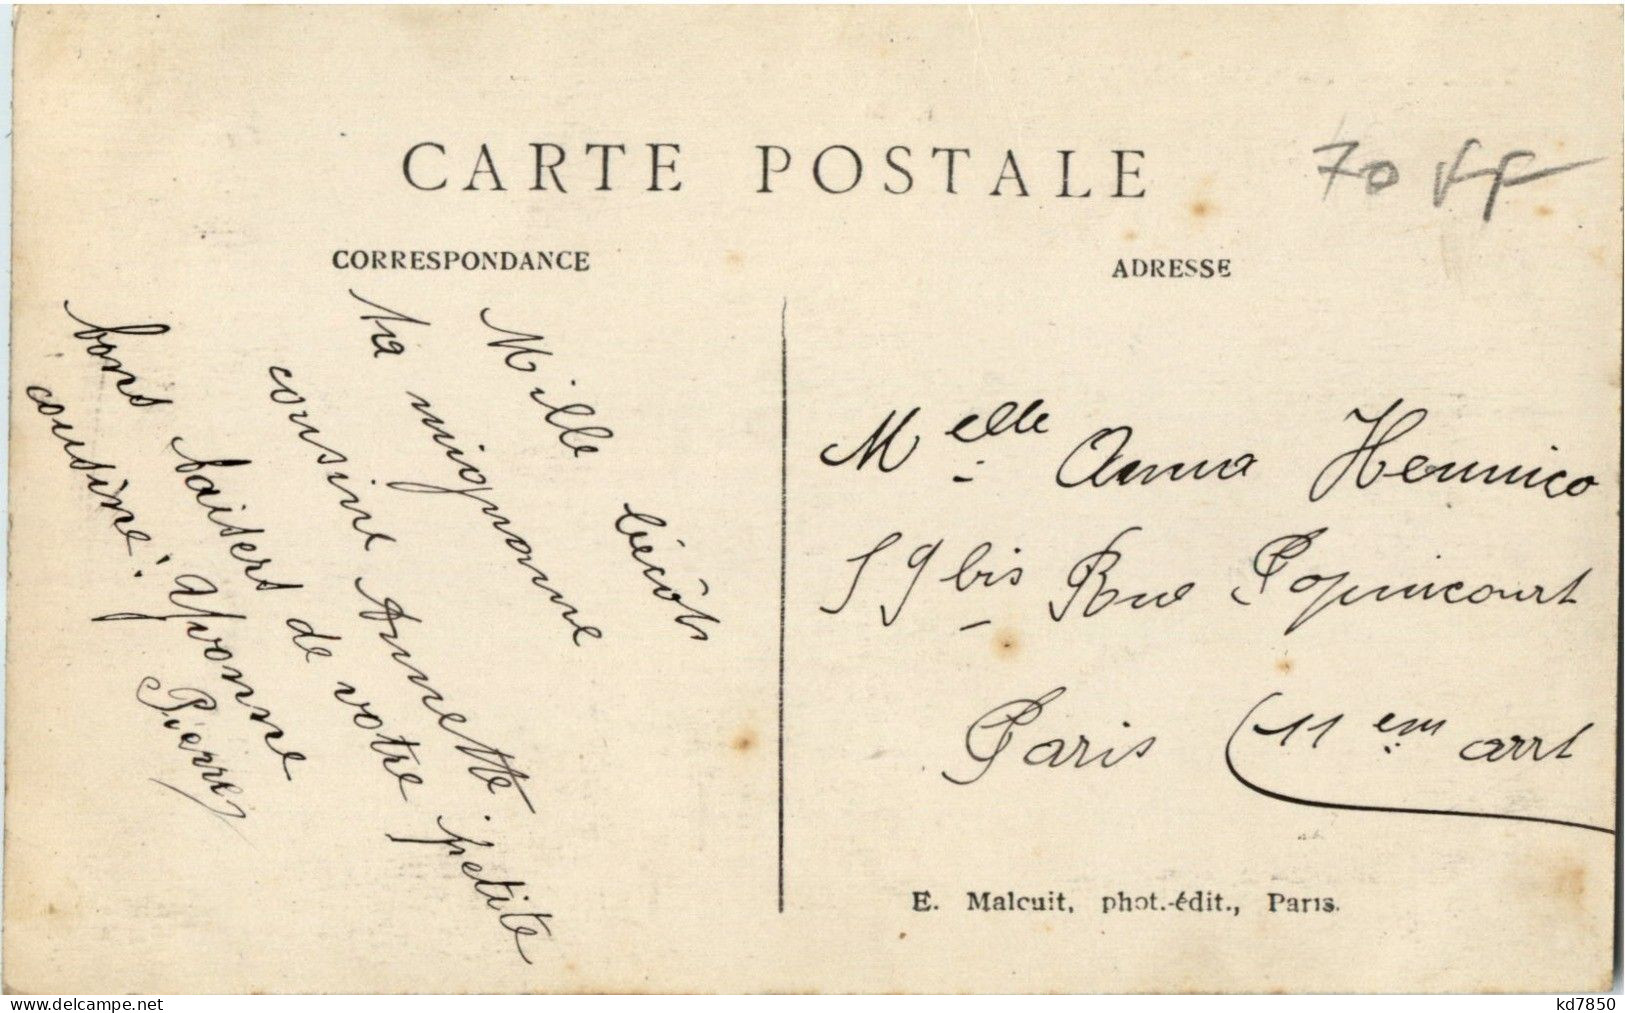 CARTE POSTALE
70 FF
CORRESPONDANCE
ADRESSE
Mille bécôts
ma mignonne
cousine Annette
bons baisers de votre petite
cousine: Yvonne
Pierrey
Melle Anna Hennico
59 bis Rue Popincourt
Paris (11 em arrt
E. Malcuit, phot.-édit., Paris.
www.delcampe.net
kd7850